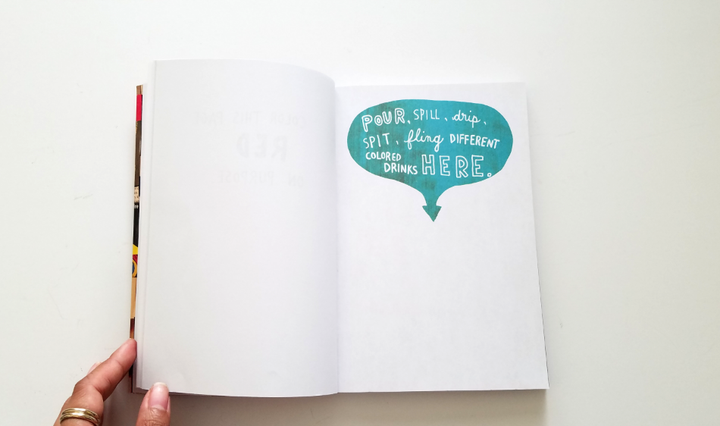 POUR, SPILL, drip,
SPIT, fling DIFFERENT
COLORED
DRINKS HERE.